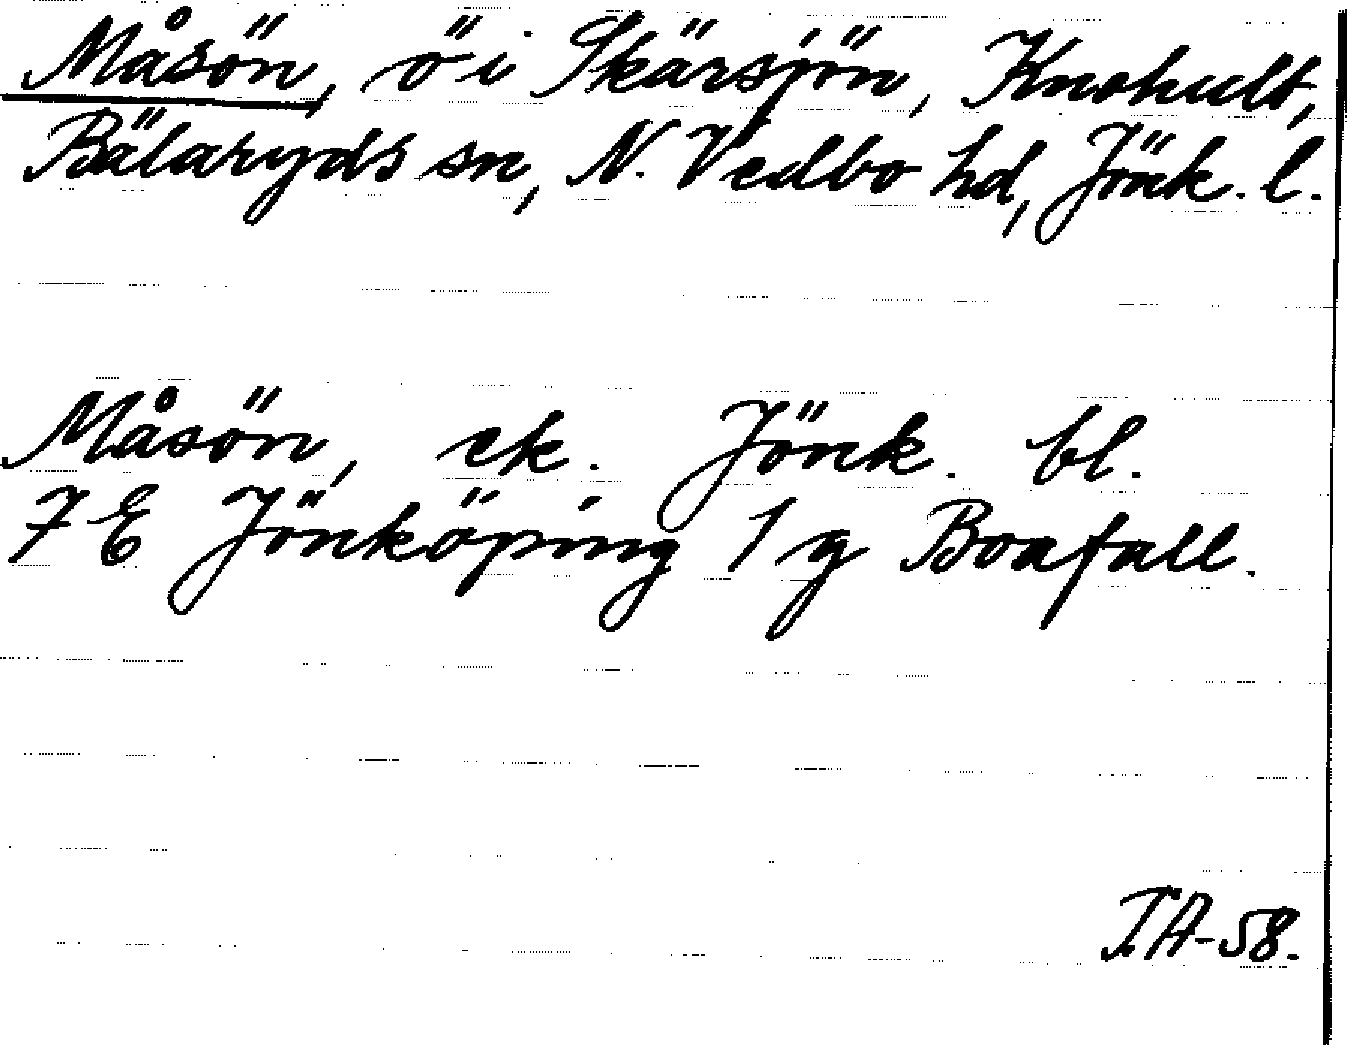 Måsön, ö i Skärsjön, Knohult,
Bälaryds sn, N. Vedbo hd, Jönk. l.
Måsön, ek. Jönk. bl.
7 E Jönköping 1 g Boafall.
IA-58.